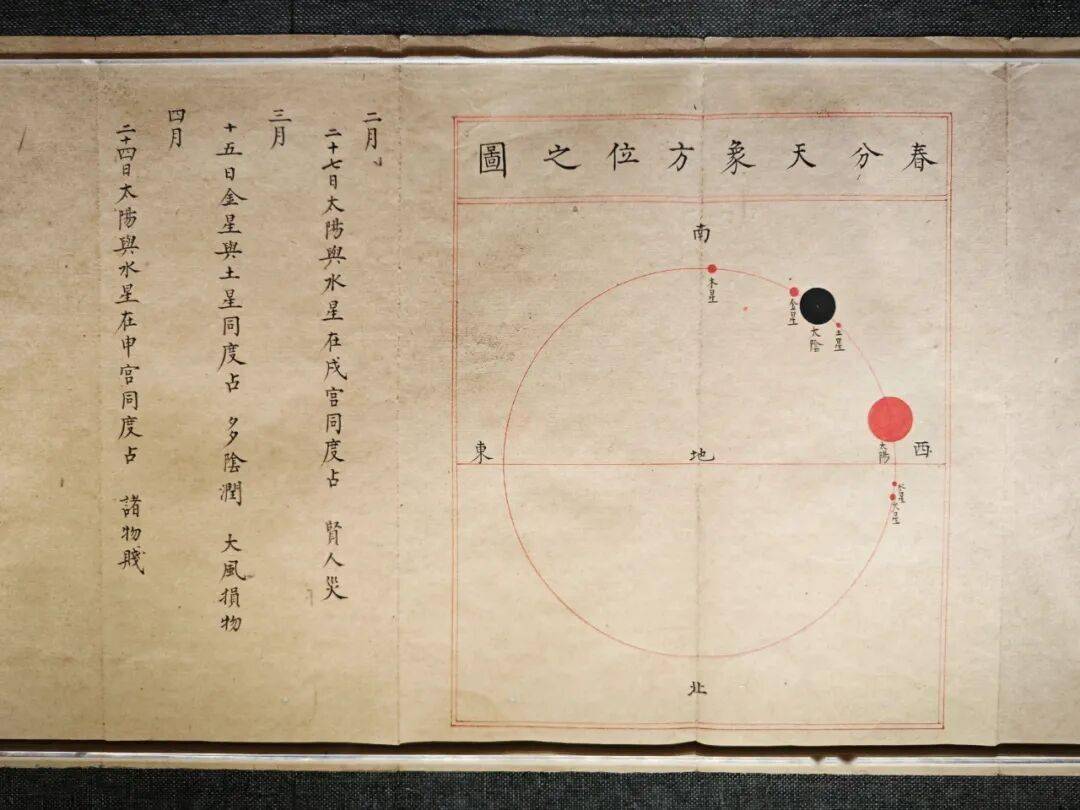 春分天象方位之圖
南
木星
金星
太陰
土星
太陽
西
水星
火星
地
東
北
二月
二十七日太陽與水星在戌宮同度占 賢人災
三月
十五日金星與土星同度占 多陰潤 大風損物
四月
二十四日太陽與水星在申宮同度占 諸物賤